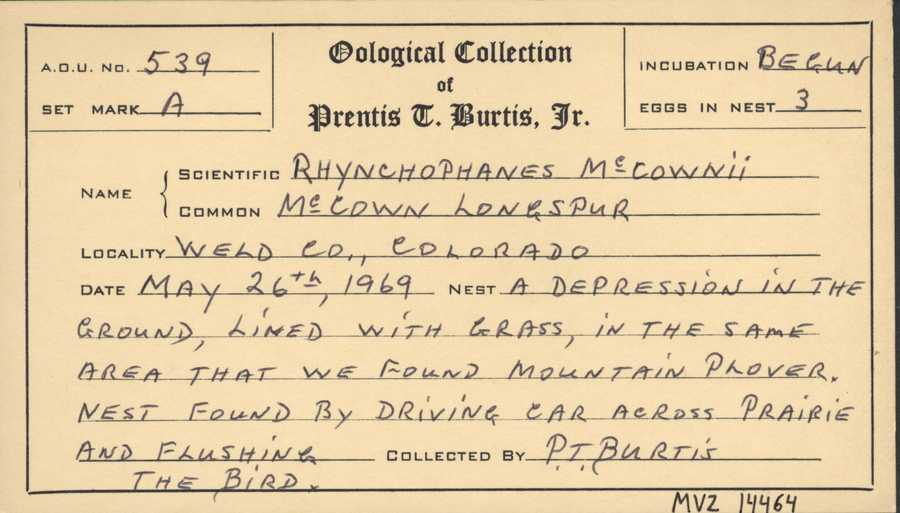 A.O.U. No. 539
SET MARK A
Oological Collection
of
Prentis T. Burtis, Jr.
INCUBATION BEGUN
EGGS IN NEST 3
NAME
SCIENTIFIC RHYNCHOPHANES McCOWNii
COMMON McCOWN LONGSPUR
LOCALITY WELD CO., COLORADO
DATE MAY 26th, 1969 NEST A DEPRESSION IN THE
GROUND, LINED WITH GRASS, IN THE SAME
AREA THAT WE FOUND MOUNTAIN PLOVER.
NEST FOUND BY DRIVING CAR ACROSS PRAIRIE
AND FLUSHING COLLECTED BY P.T. BURTIS
THE BIRD.
MVZ 14464